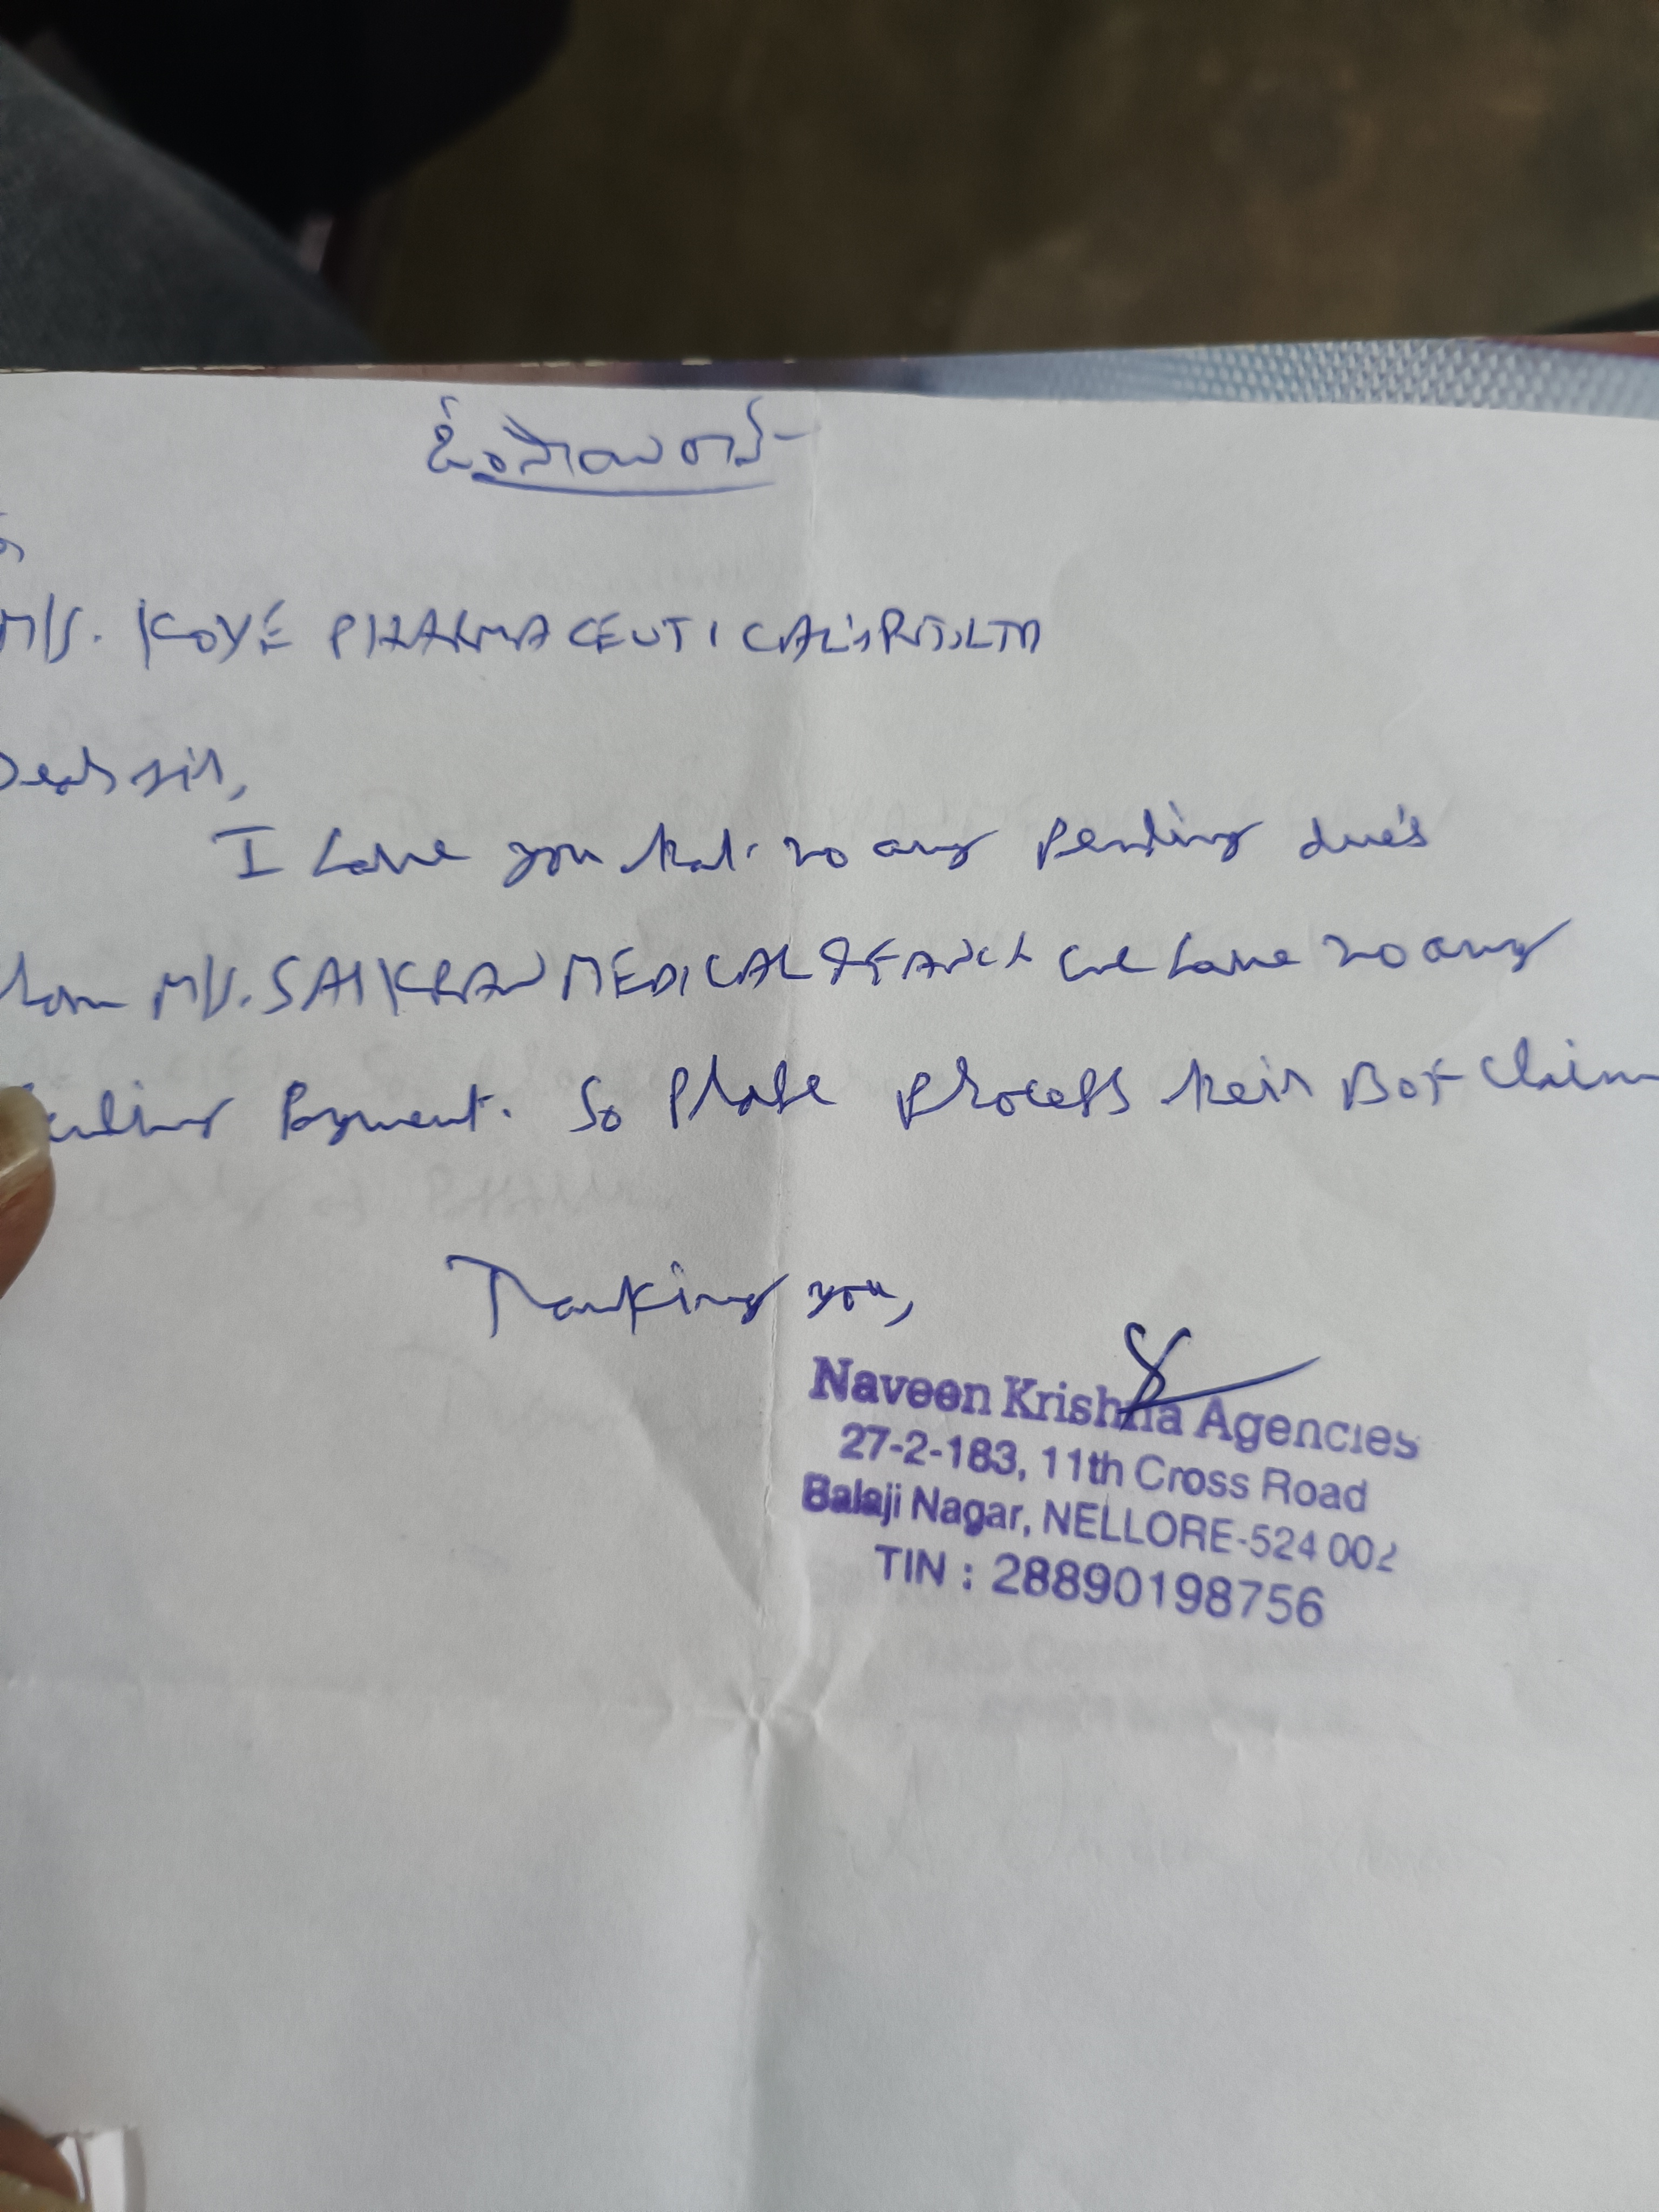 ఓం సాయి రామ్
M/s. KOYE PHARMACEUTICAL'S PVT, LTD
Dear sir,
I have you that no any pending due's
from M/s. SAI KIRAN MEDICAL & we have no any
Pending Payment. So Please process their BOX Claim
Thanking you,
Naveen Krishna Agencies
27-2-183, 11th Cross Road
Balaji Nagar, NELLORE-524 002
TIN : 28890198756